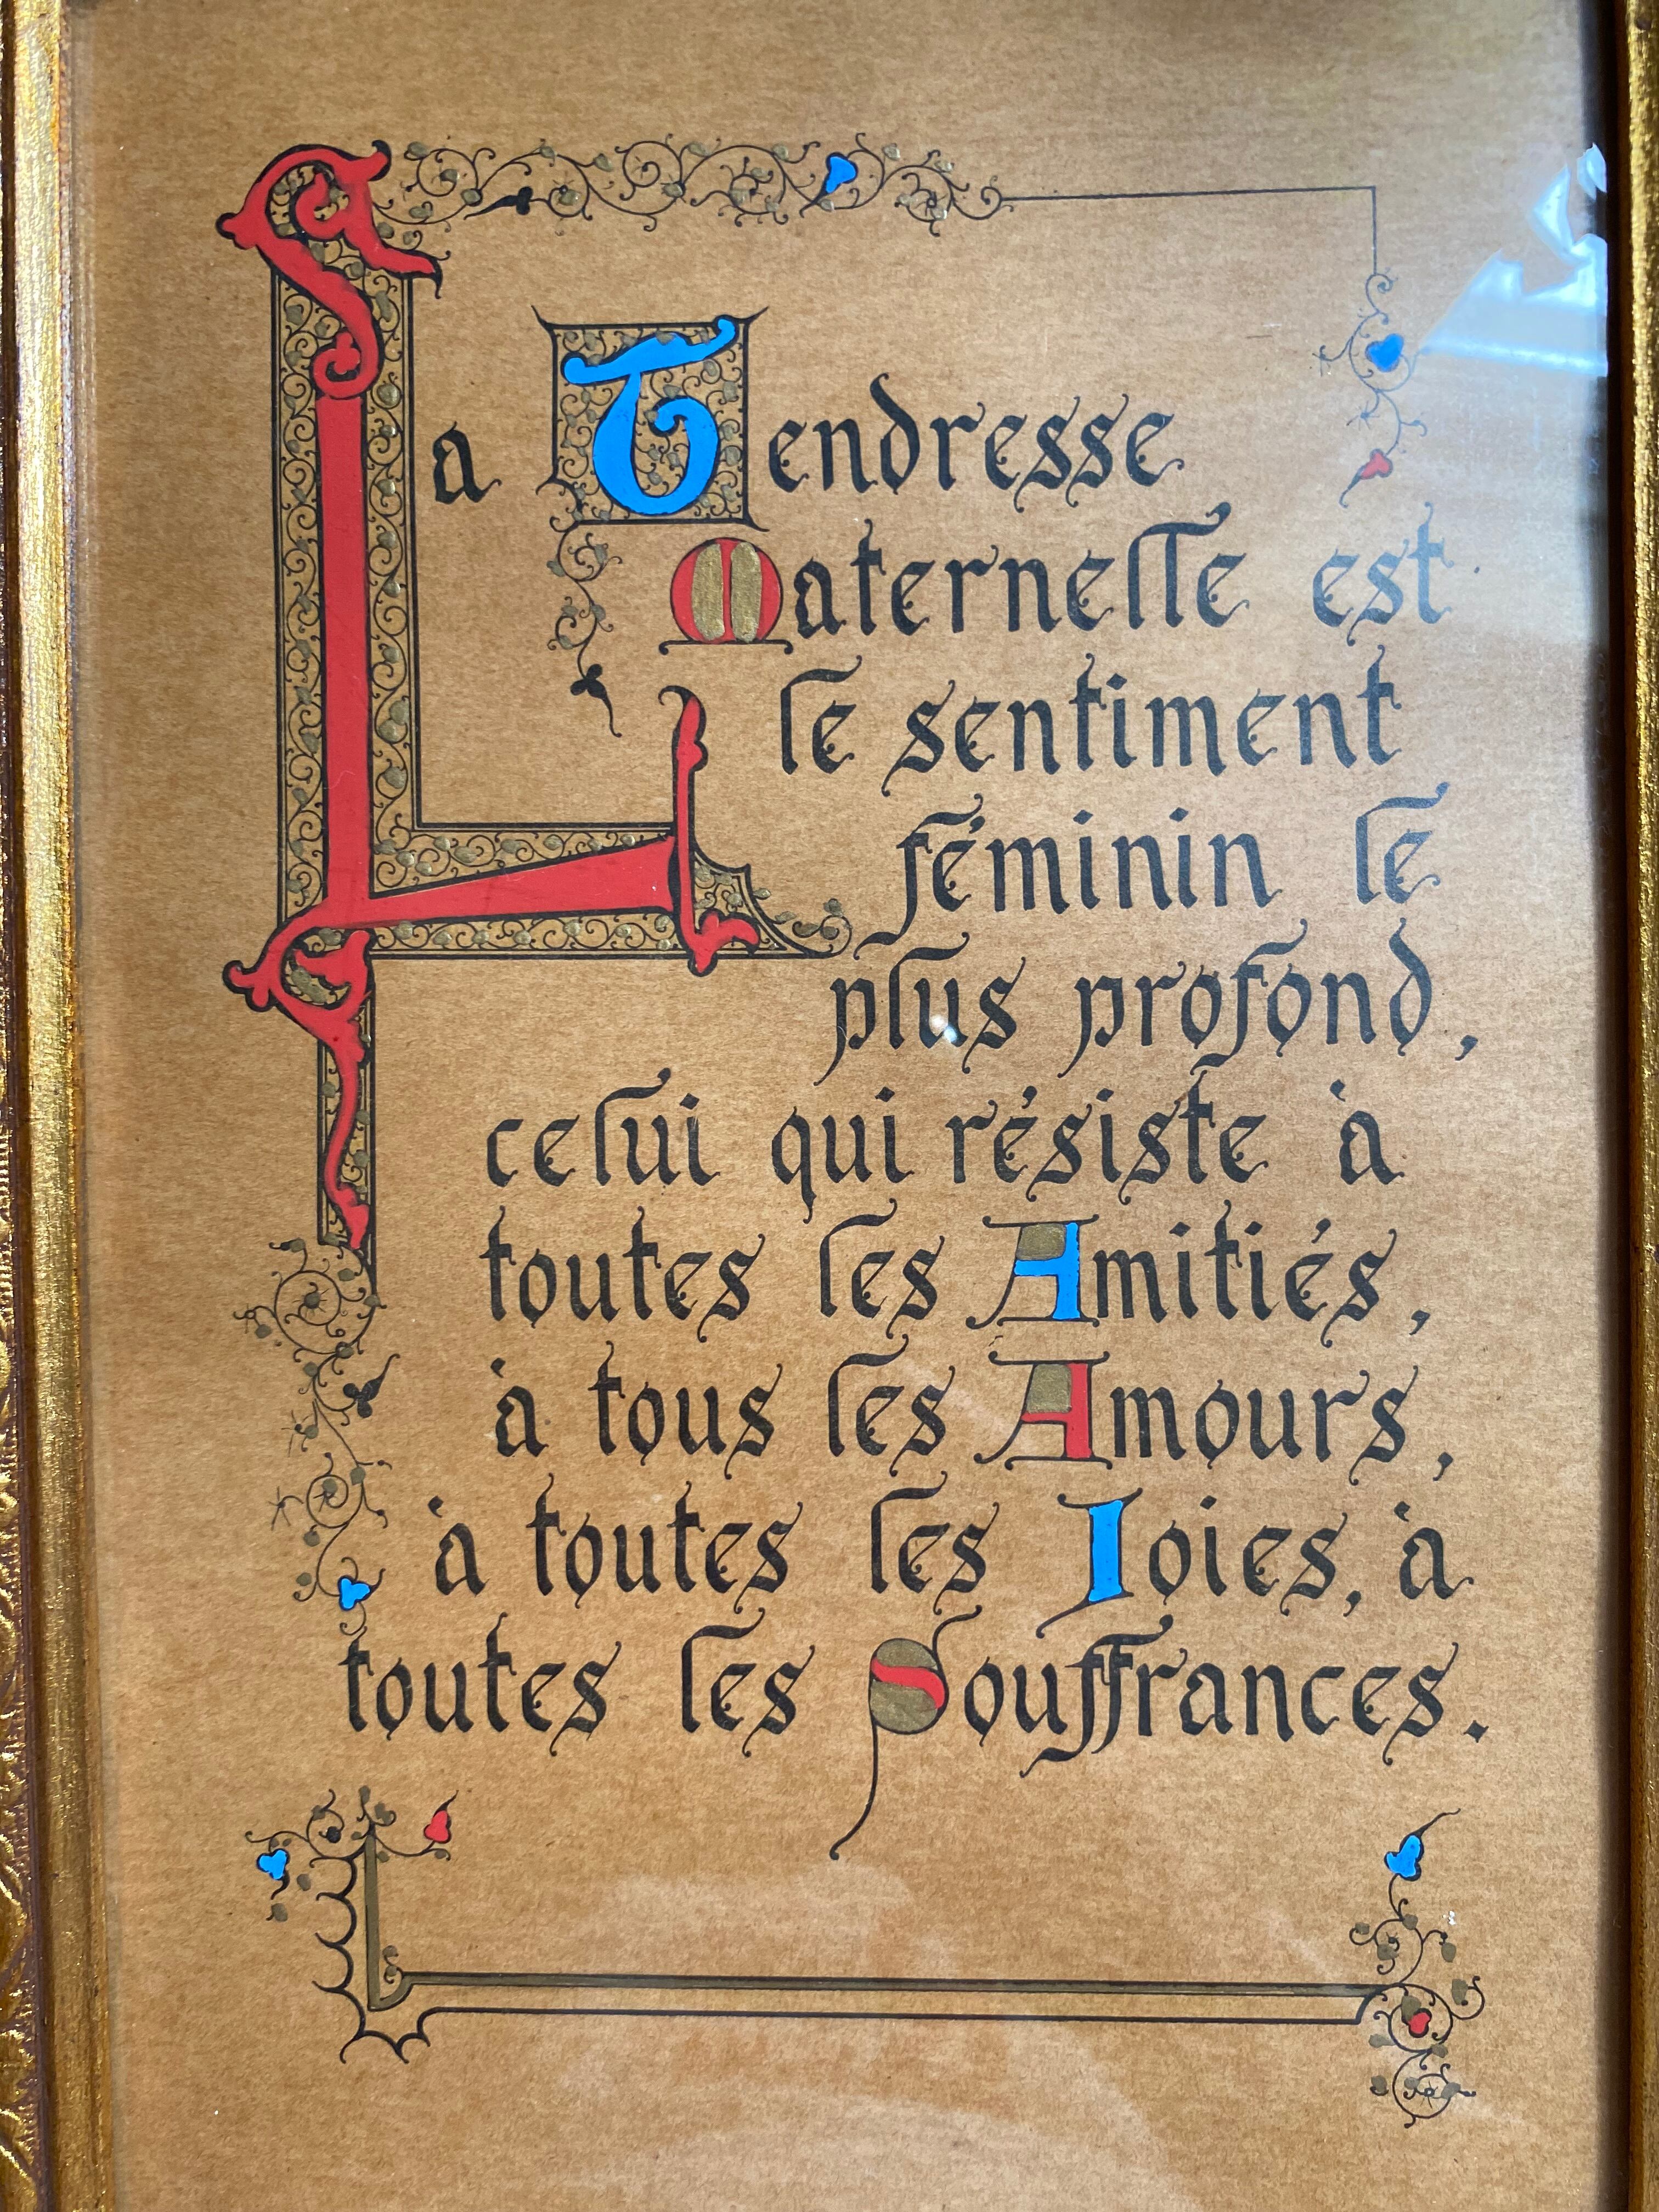 La Tendresse
Maternelle est
le sentiment
féminin le
plus profond,
celui qui résiste à
toutes les Amitiés,
à tous les Amours,
à toutes les Joies, à
toutes les Souffrances.